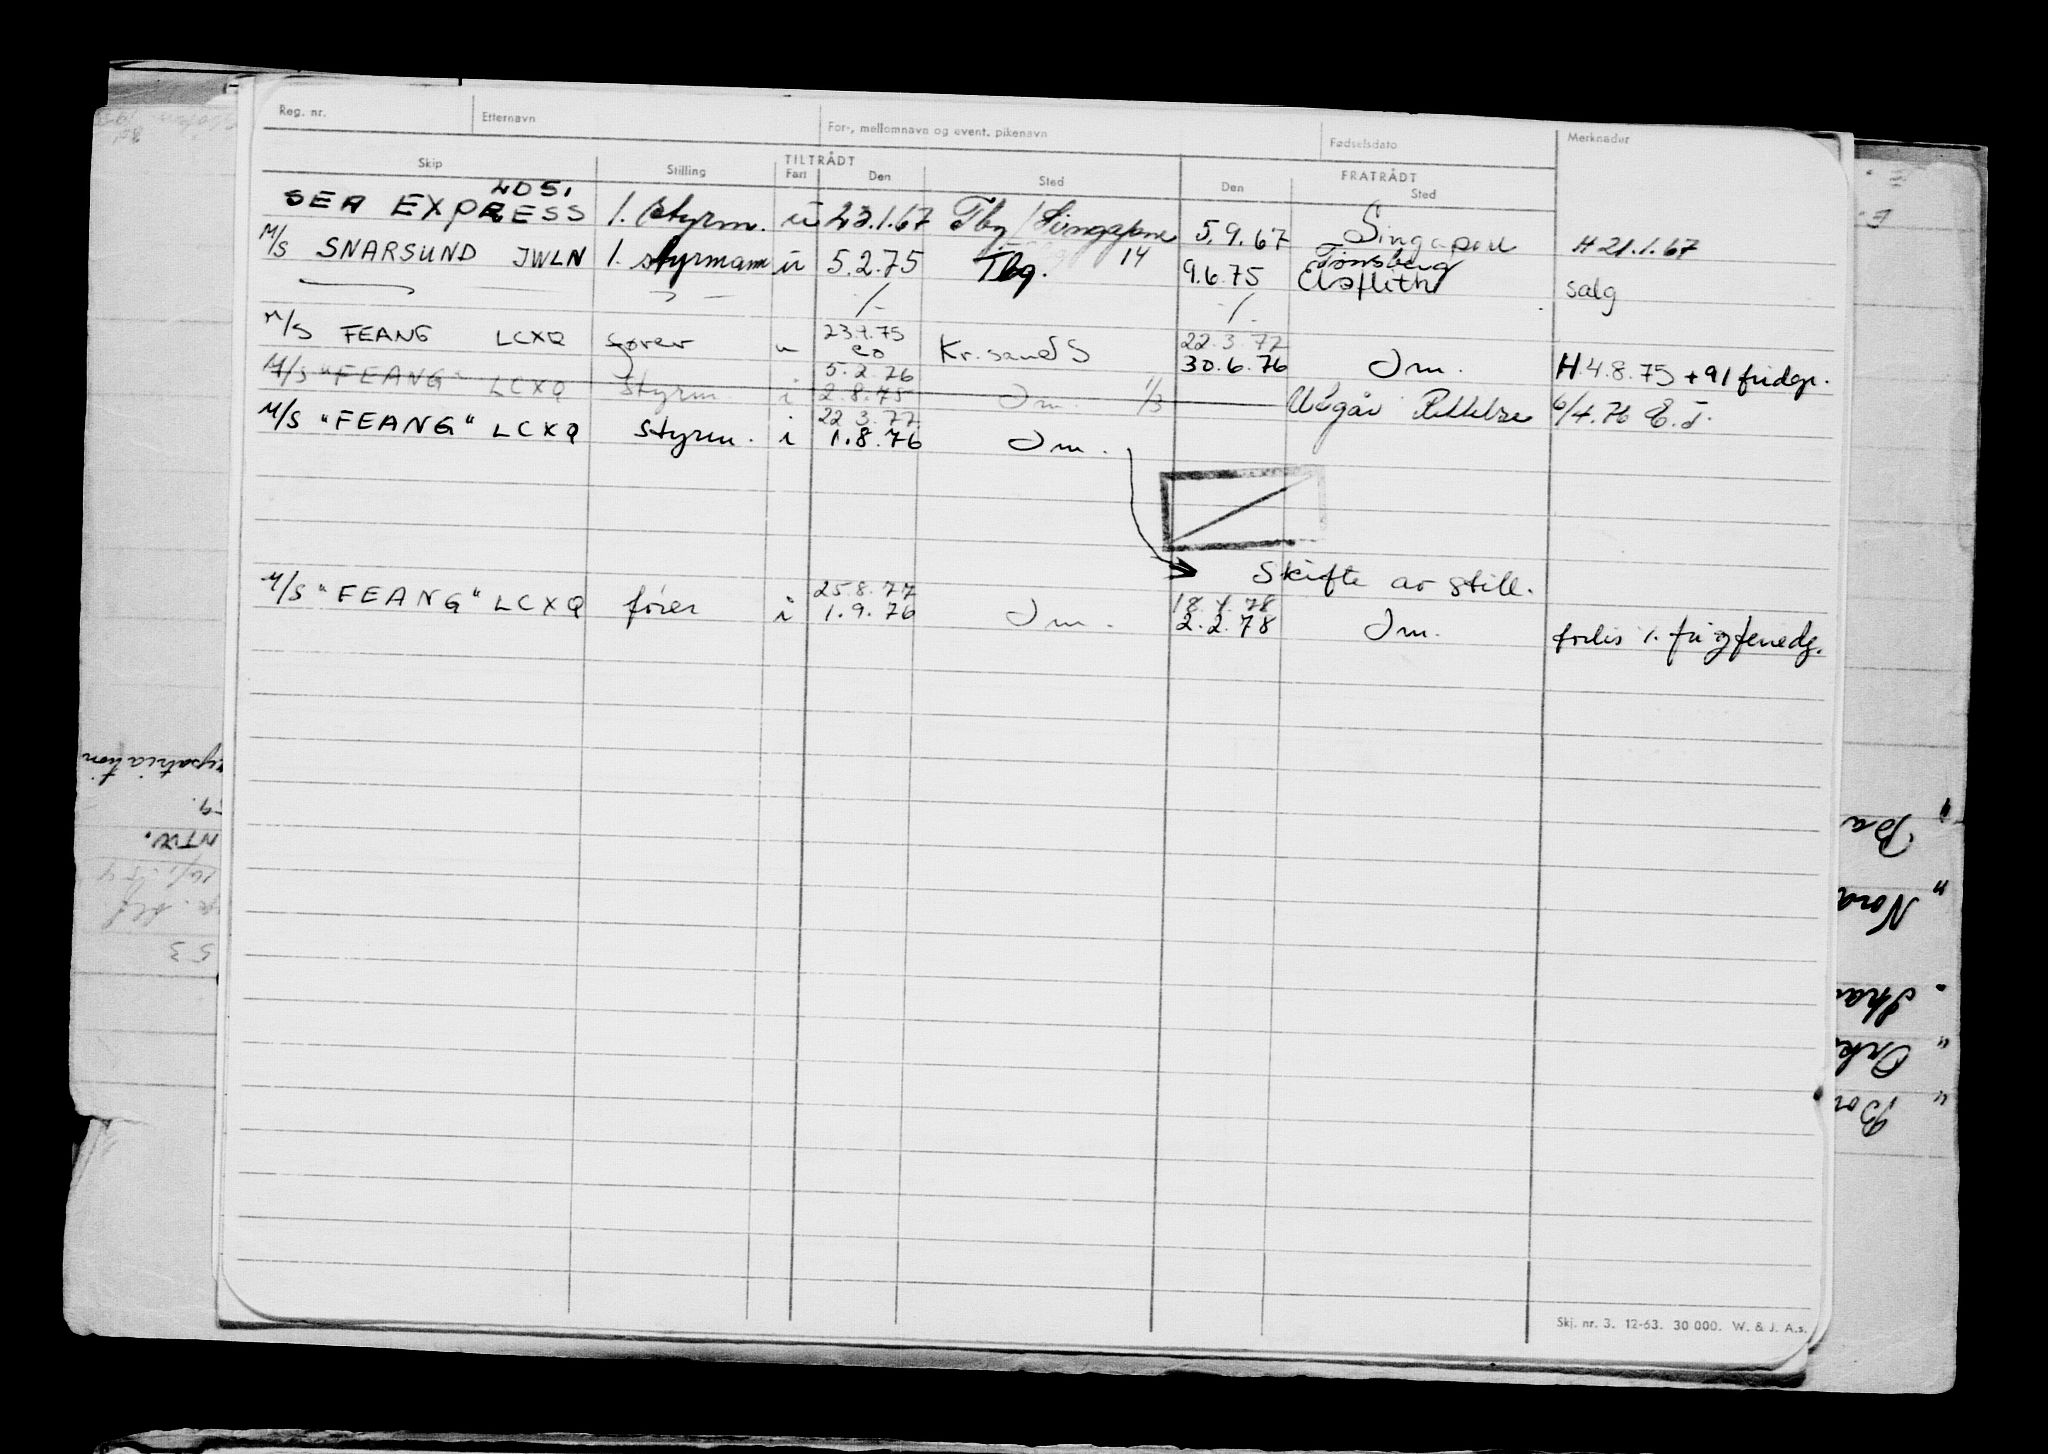 Reg. nr. Etternavn For-, mellomnavn og event. pikenavn Fødselsdato Merknader
TILTRÅDT FRATRÅDT
Skip Stilling Fart Den Sted Den Sted
LDSI
SEA EXPRESS 1. Styrm. u 23.1.67 Tbg/Singapore 5.9.67 Singapore H 21.1.67
M/S SNARSUND JWLN 1. styrmann u 5.2.75 Tbg. 14 9.6.75 Tønsberg
Elsfleth salg
23.9.75 22.3.77
M/S FEANG LCXQ fører u Kr.sand S 30.6.76 Jm. H 4.8.75 + 91 fridgr.
5.2.76
M/S "FEANG" LCXQ Styrm. i 2.8.75 Jm. 1/3 Utgår Rettelse 6/4.76 E.J.
22.3.77
M/S "FEANG" LCXQ Styrm. i 1.8.76 Jm.
Skifte av still.
25.8.77 18.4.78
M/S "FEANG" LCXQ fører i 1.9.76 Jm. 2.2.78 Jm.
Skj. nr. 3. 12-63. 30 000. W. & J. A.s.
repatriation
NTW.
53
Nord